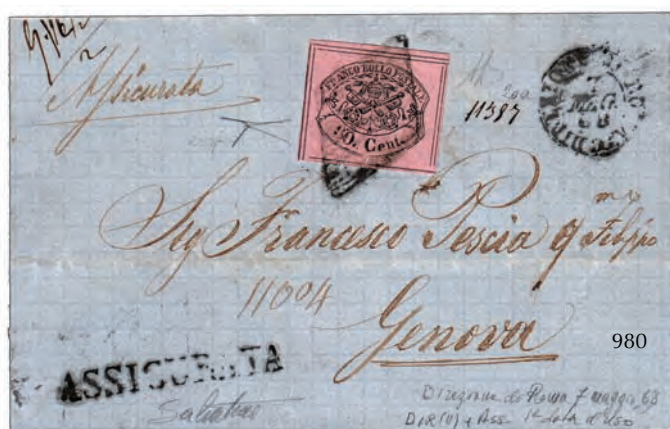 Assicurata
FRANCO BOLLO POSTALE
80. Cent.
200
11387
7
MAG
68
Sig Francesco Pescia q Filippo
11004
Genova
980
ASSICURATA
Direzione di Roma 7 maggio 68
DIR (11) + Ass. 1a data d'uso